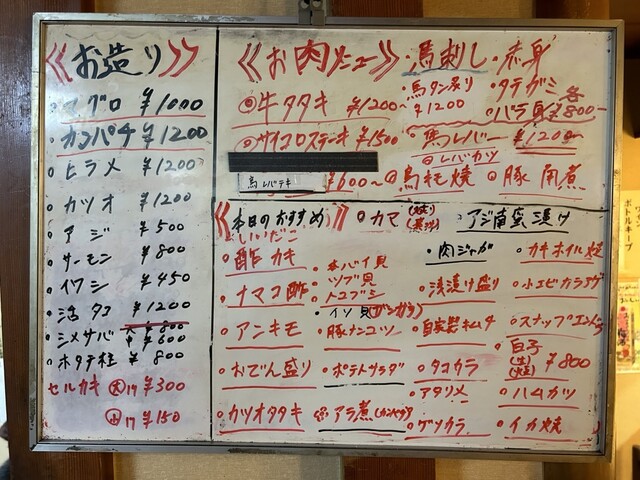 《お造り》
・マグロ ¥1000
・カンパチ ¥1200
・ヒラメ ¥1200
・カツオ ¥1200
・アジ ¥500
・サーモン ¥800
・イワシ ¥450
・活タコ ¥1200
・シメサバ ¥600
・ホタテ柱 ¥800
セルカキ 大1ヶ ¥300
小1ヶ ¥150
《お肉メニュー》
◎牛タタキ ¥1200~
◎サイコロステーキ ¥1500
馬レバテキ ¥600~
馬刺し・赤身
・馬タン炙り ¥1200
・タテガミ
・バラ身 各¥800~
・馬レバー ¥1200~
◎レバカツ
◎鳥モモ焼
◎豚角煮
《本日のおすすめ》
・カマ(焼り)(煮り)
・アジ南蛮漬け
・しいいだこ
・酢カキ
・本バイ貝
・ツブ貝
・トコブシ
・イソ貝(ガンガラ)
・肉ジャガ
・カキホイル焼
・ナマコ酢
・浅漬け盛り
・小エビカラアゲ
・アンキモ
・豚ナンコツ
・自家製キムチ
・スナップエンドウ
・おでん盛り
・ポテトサラダ
・タコカラ
・白子(生)(天) ¥800
・アタリメ
・ハムカツ
・カツオタタキ
・アラ煮(カンパチ)
・ゲソカラ
・イカ焼
ボトルキープ